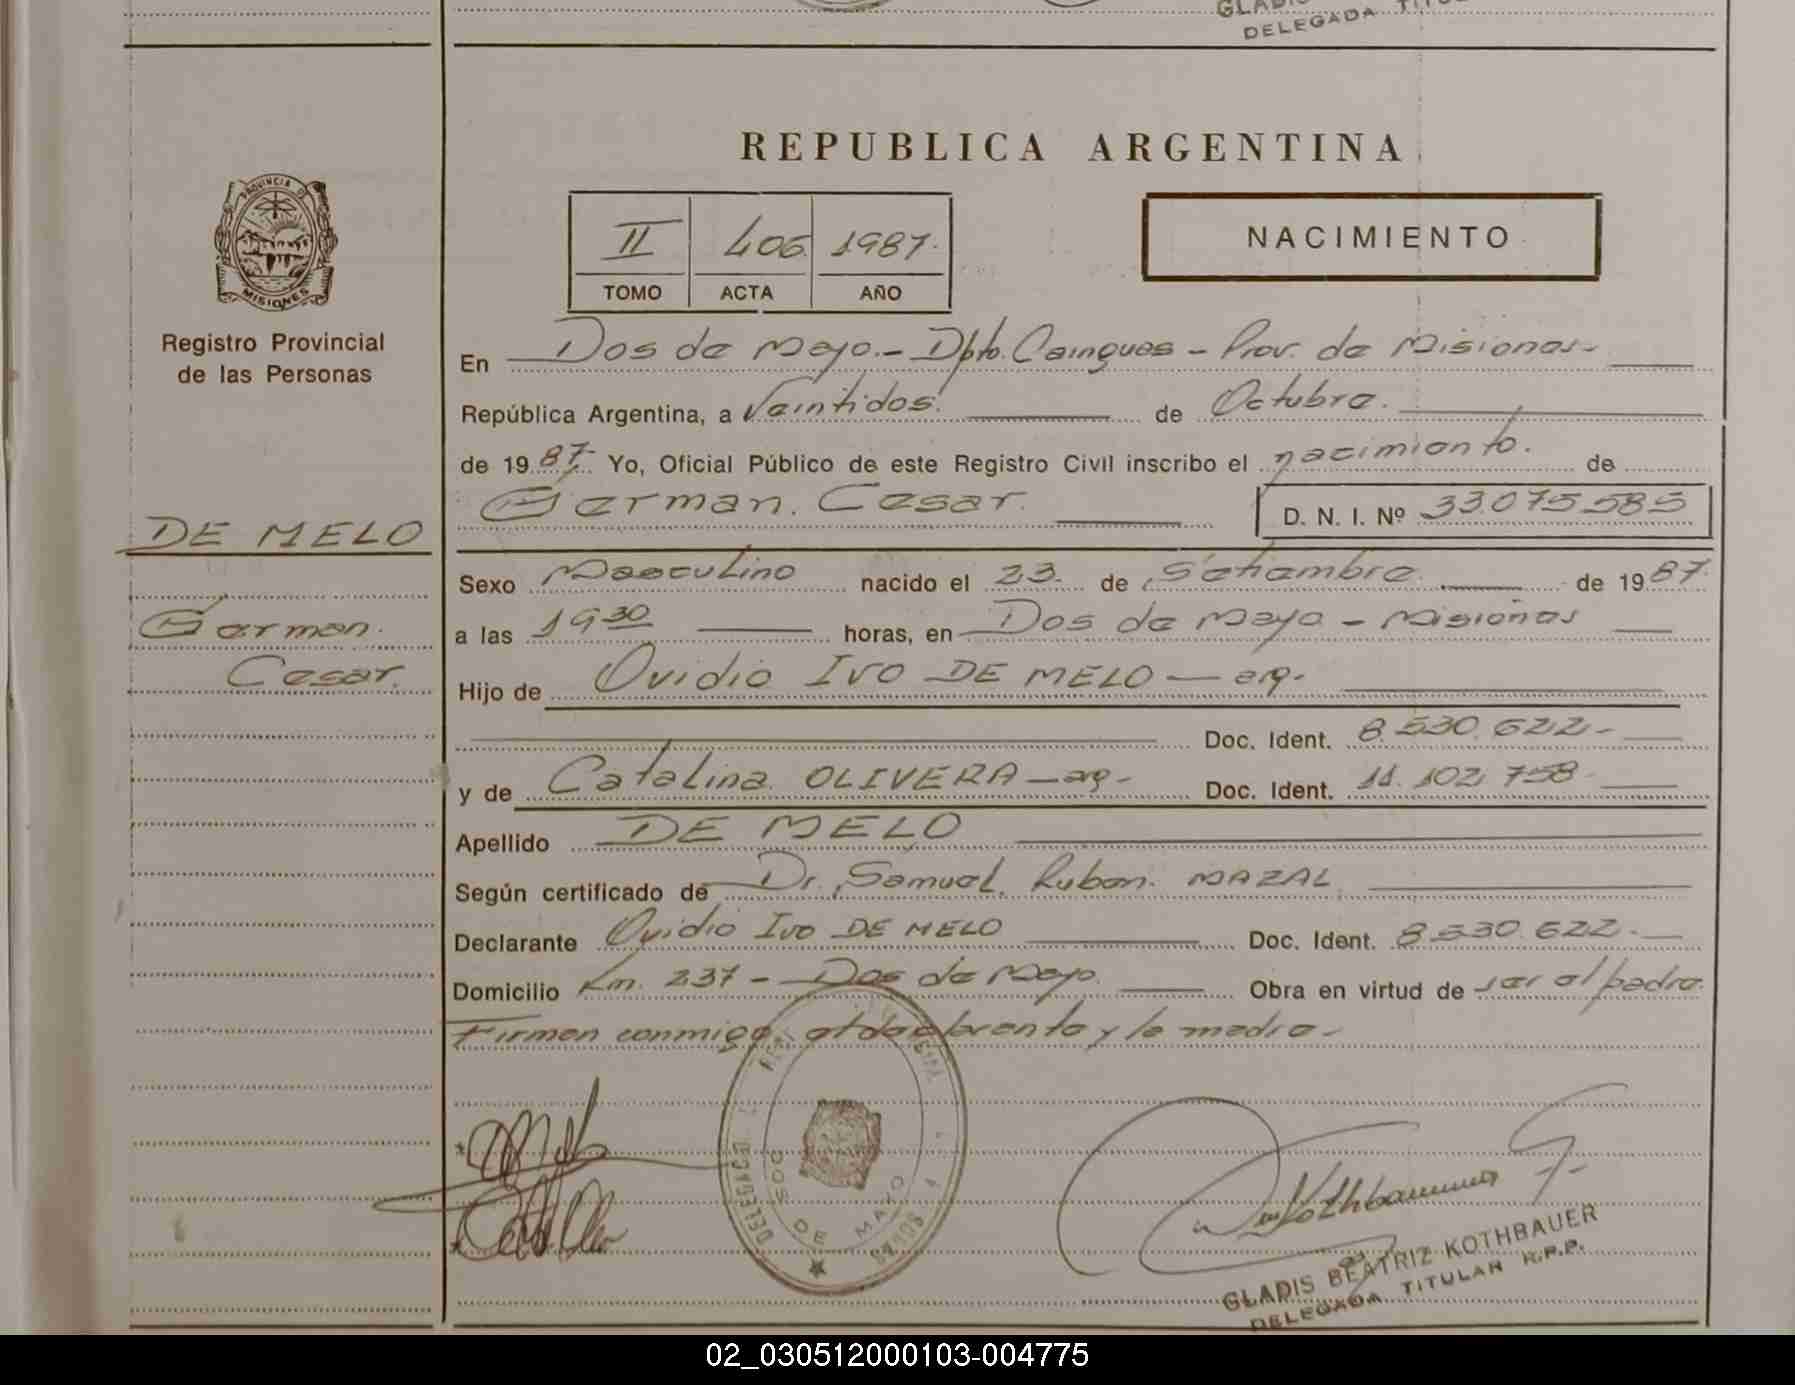 GLADIS
DELEGADA TITUL
REPUBLICA ARGENTINA
PROVINCIA D
MISIONES
Registro Provincial
de las Personas
II 406 1987.
TOMO ACTA AÑO
NACIMIENTO
En Dos de Mayo.- Dpto. Cainguas - Prov. de Misiones-
República Argentina, a Veintidos. de Octubre.
de 1987. Yo, Oficial Público de este Registro Civil inscribo el nacimiento. de
German. Cesar. D. N. I. Nº 33.075.585
DE MELO
German.
Cesar.
Sexo Masculino nacido el 23. de Setiembre. de 1987.
a las 19 30 horas, en Dos de Mayo - Misiones
Hijo de Ovidio Ivo DE MELO - arg.
Doc. Ident. 8.530.622-
y de Catalina OLIVERA - arg- Doc. Ident. 11.102.758
Apellido DE MELO
Según certificado de Dr. Samuel. Ruben. MAZAL
Declarante Ovidio Ivo DE MELO Doc. Ident. 8.530.622.-
Domicilio Km. 237 - Dos de Mayo. Obra en virtud de ser el padre.
Firman conmigo el declarante y la madre-
DOS DE MAYO
Kothbauer G.
GLADIS BEATRIZ KOTHBAUER
DELEGADA TITULAR R.P.P.
02_030512000103-004775